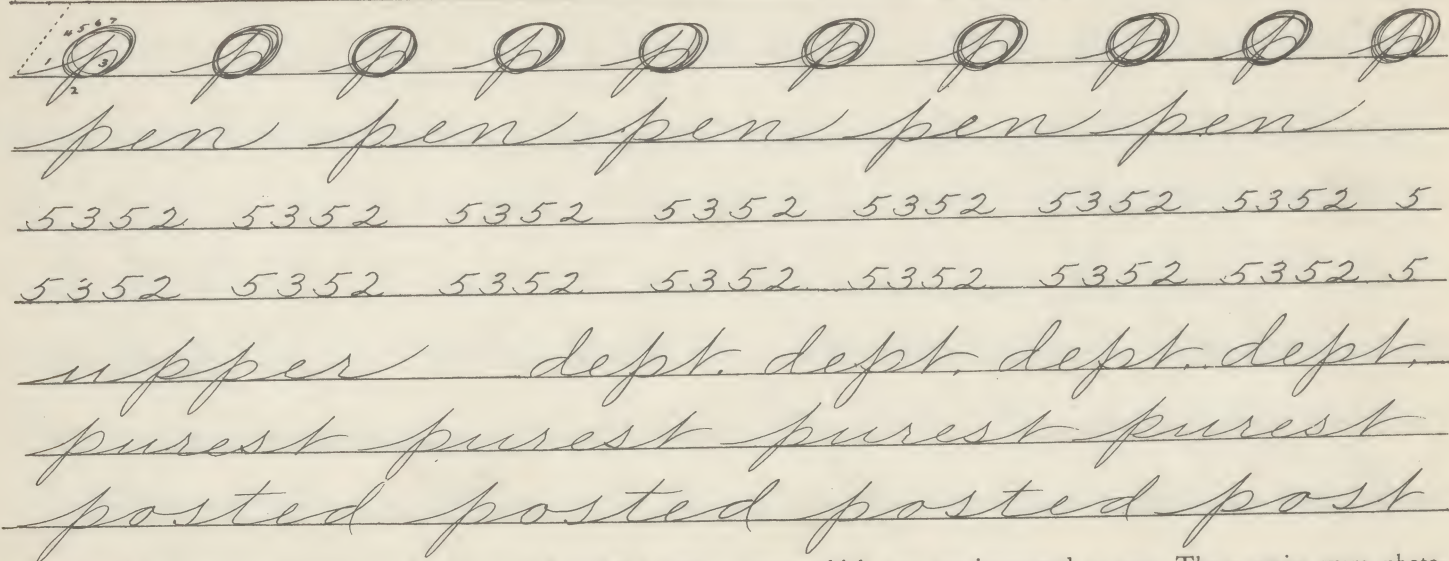 4 5 6 7
1 3
2
p p p p p p p p p p
pen pen pen pen pen
5352 5352 5352 5352 5352 5352 5352 5
5352 5352 5352 5352 5352 5352 5352 5
upper dept. dept. dept. dept.
purest purest purest purest
posted posted posted post